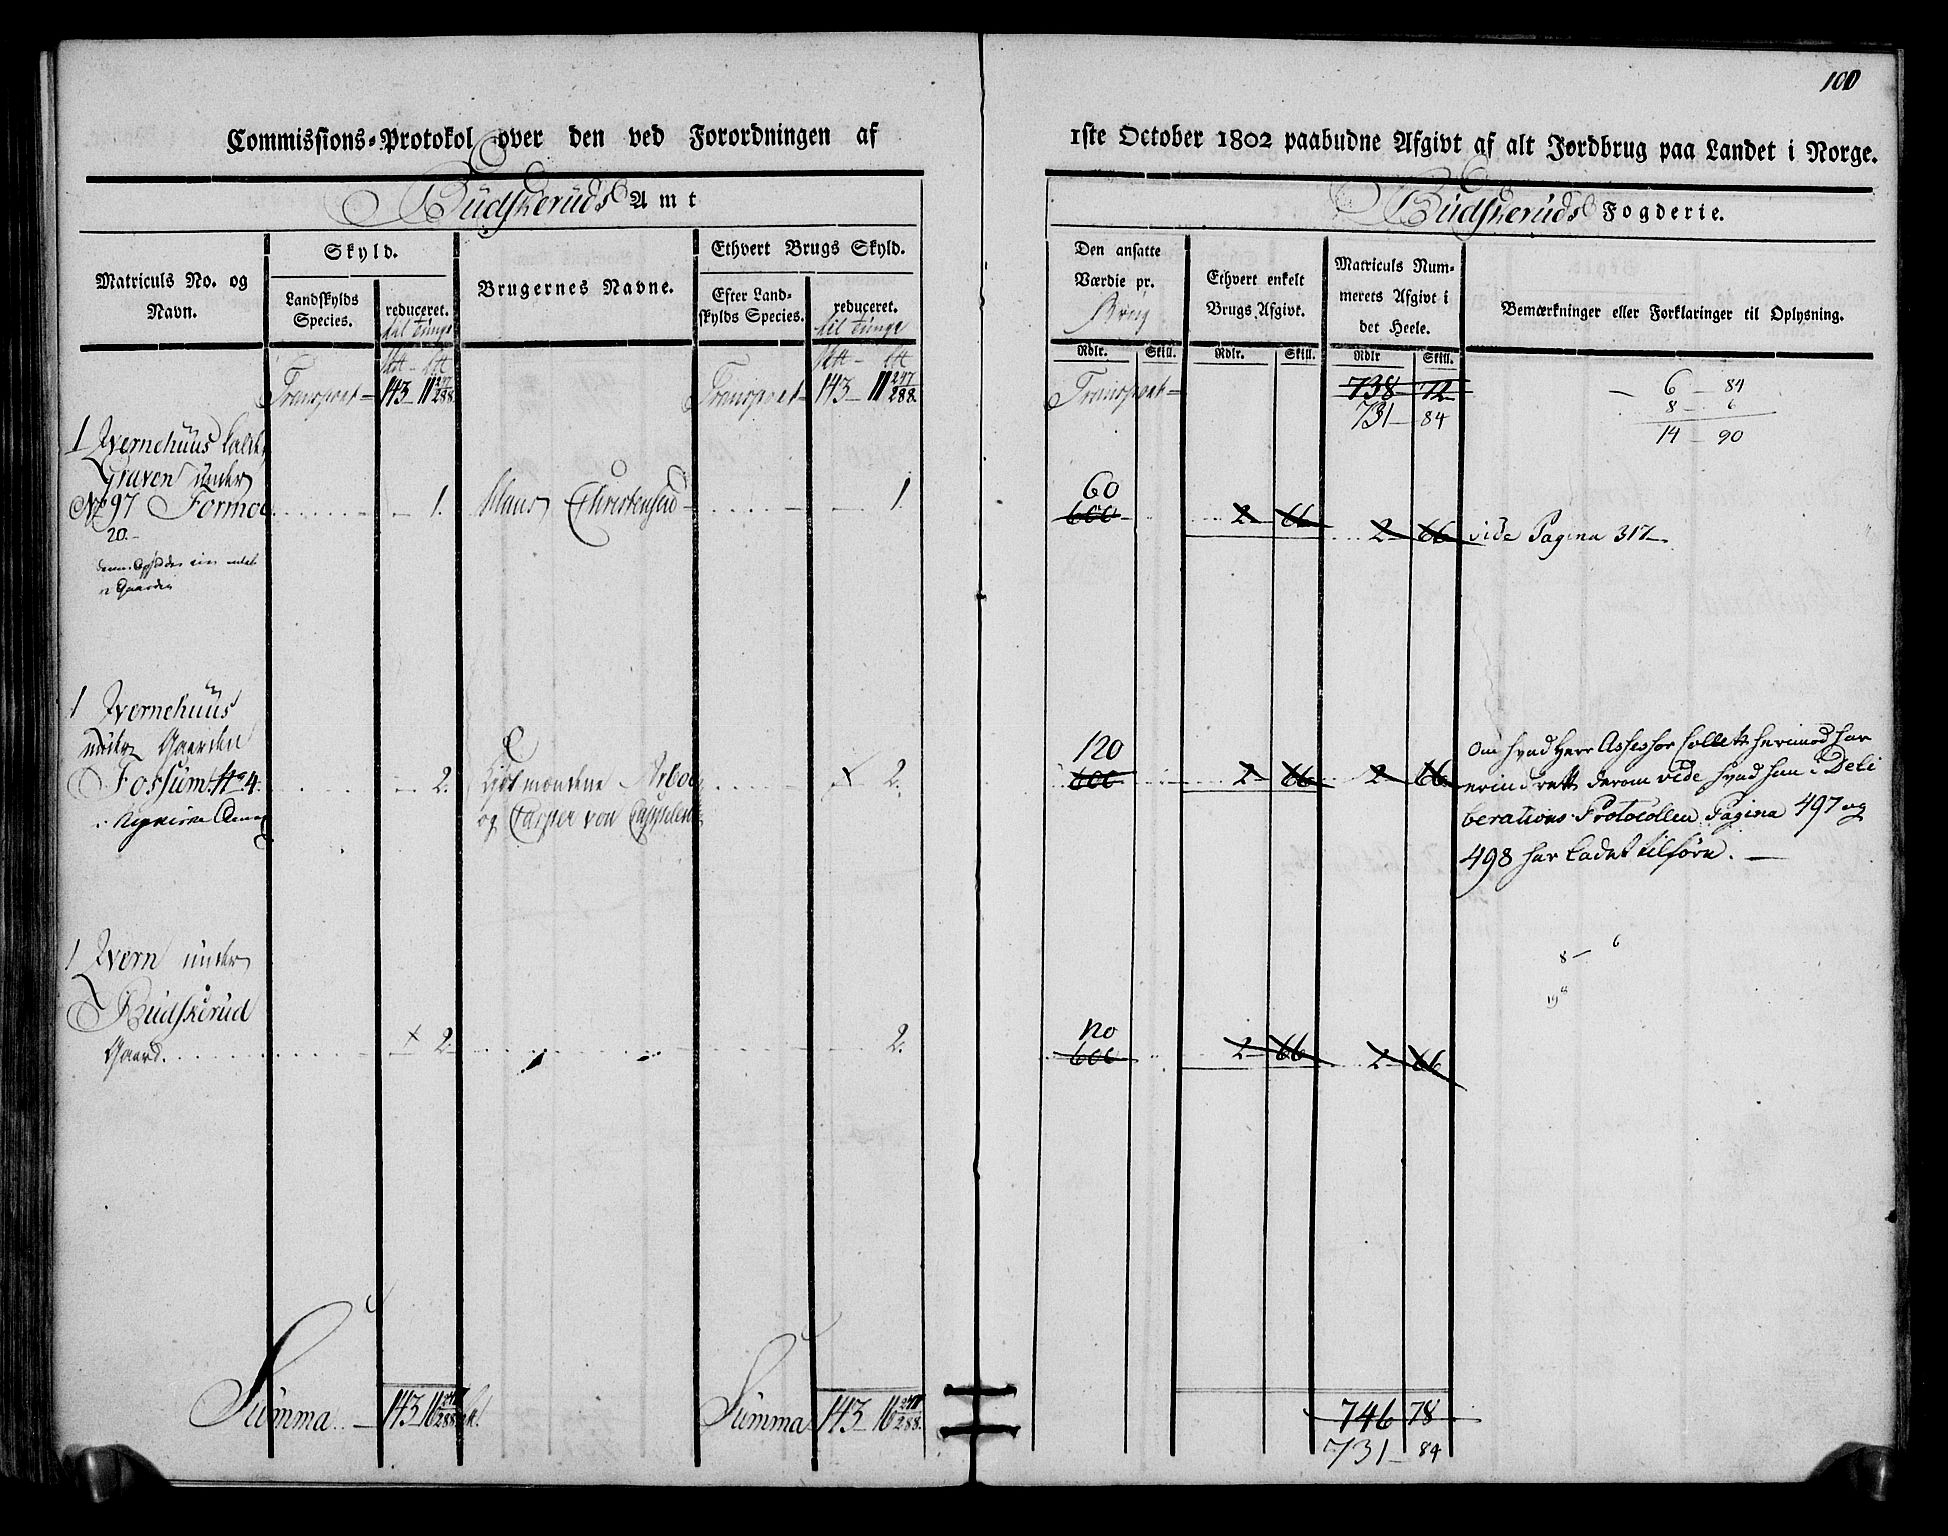 100
Commissions-Protokol over den ved Forordningen af
1ste October 1802 paabudne Afgivt af alt Jordbrug paa Landet i Norge.
Büdskerüds Amt
Büdskerüds Fogderie.
Matriculs No. og Navn.
Skyld.
Landskylds Species.
reduceret.
Brugernes Navne.
Ethvert Brugs Skyld.
Efter Landskylds Species.
reduceret.
til Tunge
Den ansatte Værdie pr.
Brug
Ethvert enkelt Brugs Afgivt.
Matriculs Nummerets Afgivt i det Heele.
Bemærkninger eller Forklaringer til Oplysning.
Rdlr. Skill. Rdlr. Skill. Rdlr Skill.
Transport — 143 — 11 247/288 Transport — 143 — 11 247/288 Transport — 738 — 72 6 — 84
731 — 84 8 — 6
14 — 90
1 Qvernehüüs
Graven under
No 97 Formoe 1. Claus Christensen 1. 60
600 2 — 66 2 — 66 vide Pagina 317
20.
Gaarden
1 Qvernehüüs
under Gaarden
Fossum No 4. 2. Kjøbmændene 2. 120
600 2 — 66 2 — 66
og Casper von Cappelen
Om hvad Herr Assessor Collett herimod har
erindret derom vide hvad han i Deli
berations Protocollen Pagina 497 og
498 har ladet tilføre. —
1 Qvern under
Büdskerüd
Gaard. 2. 2. 120
600 2 — 66 2 — 66
8 — 6
19 8
Summa 143 — 16 247/288 Summa 143 — 16 247/288 746 78
731 — 84